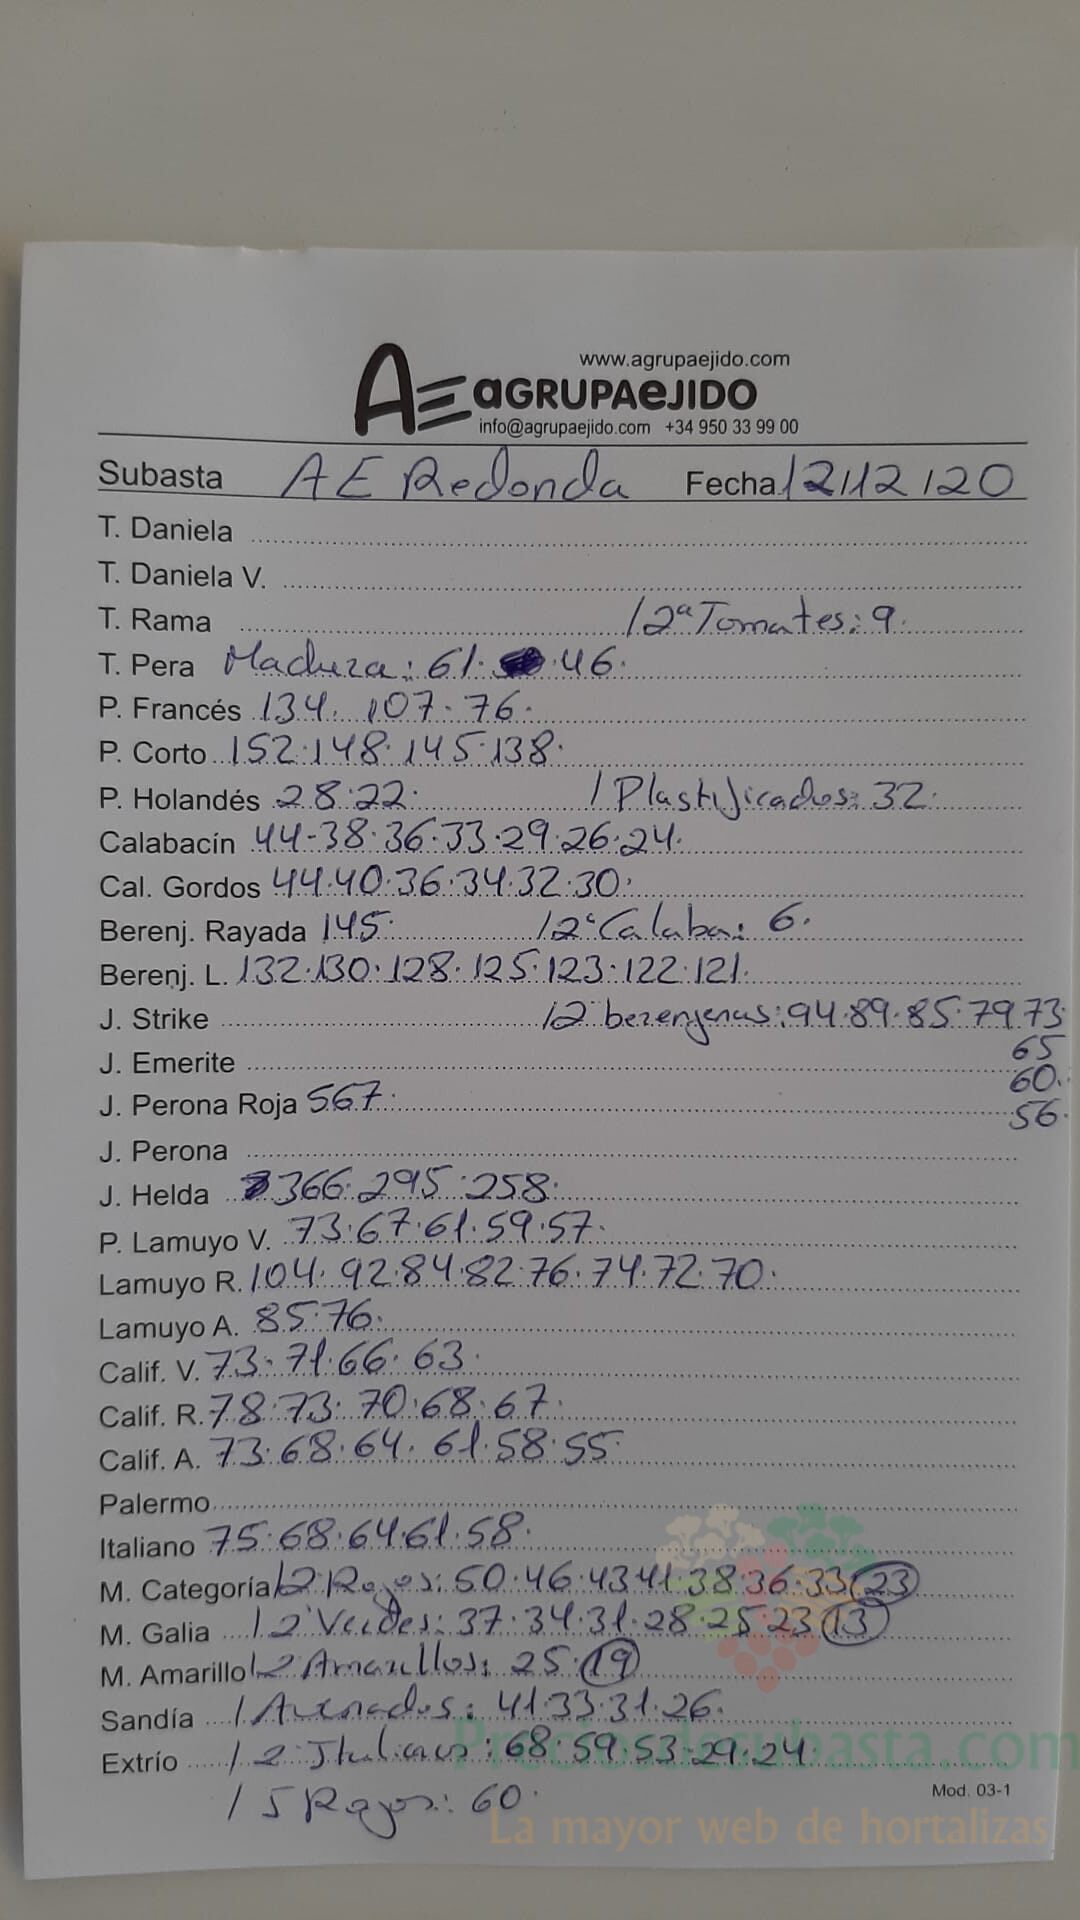 www.agrupaejido.com
AE aGRUPAeJIDO
info@agrupaejido.com +34 950 33 99 00
Subasta AE Redonda Fecha 12/12/20
T. Daniela
T. Daniela V.
T. Rama / 2ª Tomates: 9.
T. Pera Madura: 61. 46.
P. Francés 134. 107. 76.
P. Corto 152. 148. 145. 138.
P. Holandés 28. 22. / Plastificados: 32.
Calabacín 44-38. 36. 33. 29. 26. 24.
Cal. Gordos 44. 40. 36. 34. 32. 30.
Berenj. Rayada 145. / 2ª Calaba: 6.
Berenj. L. 132. 130. 128. 125. 123. 122. 121.
J. Strike / 2ª berenjenas: 94. 89. 85. 79. 73.
65
J. Emerite 60.
J. Perona Roja 567. 56.
J. Perona
J. Helda 366. 295. 258.
P. Lamuyo V. 73. 67. 61. 59. 57.
Lamuyo R. 104. 92. 84. 82. 76. 74. 72. 70.
Lamuyo A. 85. 76.
Calif. V. 73. 71. 66. 63.
Calif. R. 78. 73. 70. 68. 67.
Calif. A. 73. 68. 64. 61. 58. 55.
Palermo
Italiano 75. 68. 64. 61. 58.
M. Categoría / 2ª Rojos: 50. 46. 43 41. 38. 36. 33. 23
M. Galia / 2ª Verdes: 37. 34. 31. 28. 25. 23 13
M. Amarillo / 2ª Amarillos: 25. 19
Sandía / Asurcados: 41. 33. 31. 26.
Extrío / 2ª Italianos: 68. 59. 53. 29. 24.
/ 5 Rojos: 60.
Mod. 03-1
Preciosdesubasta.com
La mayor web de hortalizas